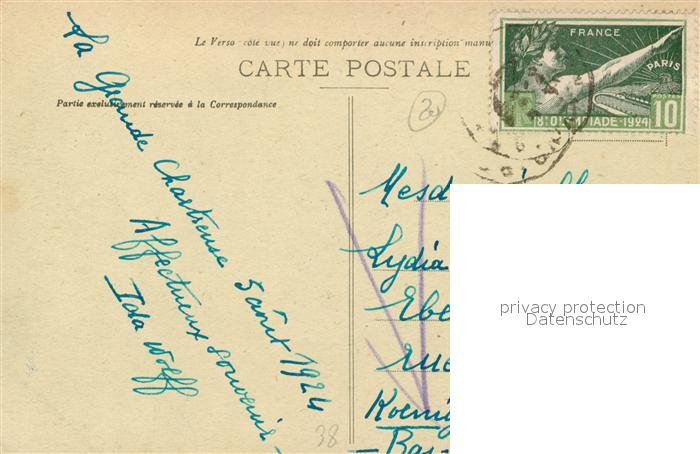 Le Verso (côté vue) ne doit comporter aucune inscription manu
CARTE POSTALE
Partie exclusivement réservée à la Correspondance
FRANCE
PARIS
8e OLYMPIADE-1924
10
La Grande Chartreuse 5 août 1924
Affectueux souvenir
Ida Wolff
20
Mesd
Lydia
Ebe
rue
Koenig
Bas
38
privacy protection
Datenschutz